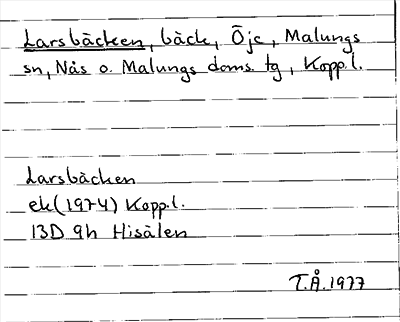 Larsbäcken, bäck, Öje, Malungs
sn, Nås o. Malungs doms. tg, Kopp.l.
Larsbäcken
ek (1974) Kopp.l.
13D 9h Hisälen
T.Å. 1977